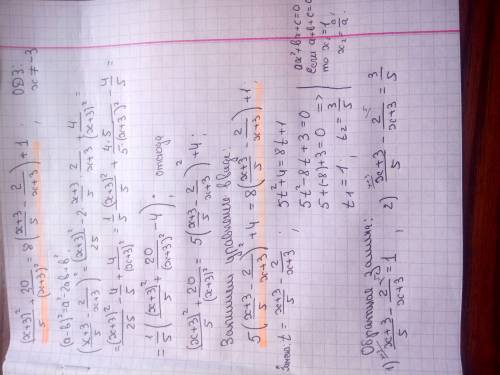 (x+3)²/5 + 20/(x+3)² = 8((x+3)/5 - 2/(x+3)) + 1 ; ОДЗ:
x ≠ -3
(a-b)² = a² - 2ab + b²
((x+3)/5 - 2/(x+3))² = (x+3)²/25 - 2·(x+3)/5·2/(x+3) + 4/(x+3)² =
= (x+3)²/25 - 4/5 + 4/(x+3)² = 1/5·(x+3)²/5 + 4·5/(5·(x+3)²) - 4/5 =
= 1/5((x+3)²/5 + 20/(x+3)² - 4), откуда
(x+3)²/5 + 20/(x+3)² = 5((x+3)/5 - 2/(x+3))² + 4 ;
Запишем уравнение в виде:
5((x+3)/5 - 2/(x+3))² + 4 = 8((x+3)/5 - 2/(x+3)) + 1 ;
Замена: t = (x+3)/5 - 2/(x+3) ; 5t² + 4 = 8t + 1
5t² - 8t + 3 = 0
5 + (-8) + 3 = 0 =>
t₁ = 1 ; t₂ = 3/5
ax² + bx + c = 0
если a + b + c = 0,
то x₁ = 1
x₂ = c/a.
Обратная замена:
1) (x+3)/5 - 2/(x+3) = 1 ; 2) (x+3)/5 - 2/(x+3) = 3/5